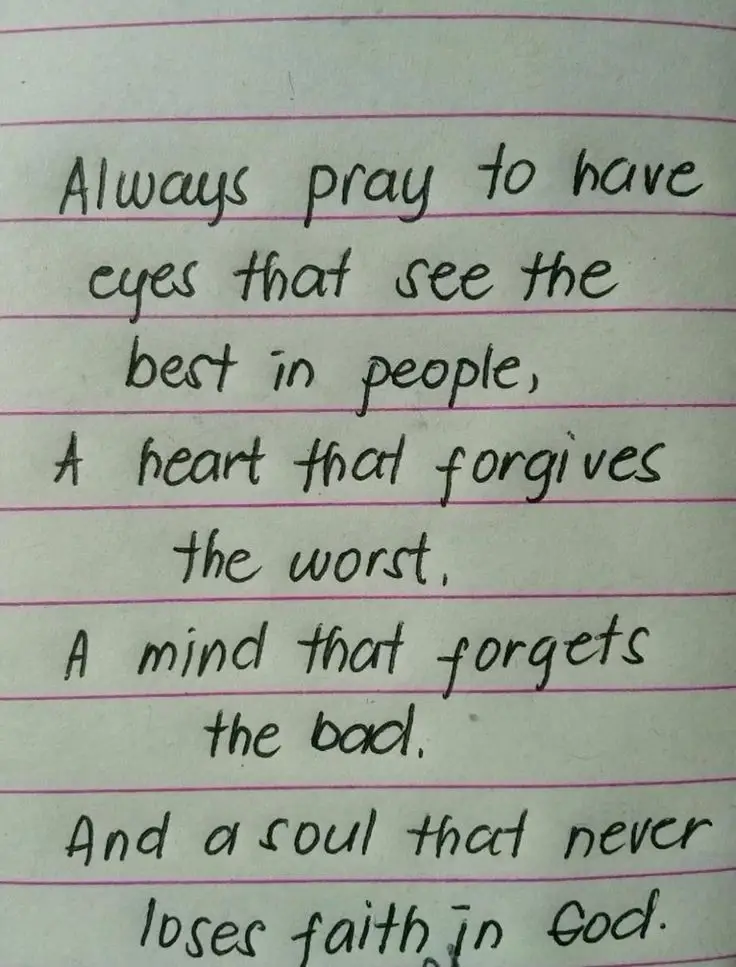 Always pray to have
eyes that see the
best in people,
A heart that forgives
the worst,
A mind that forgets
the bad.
And a soul that never
loses faith in God.